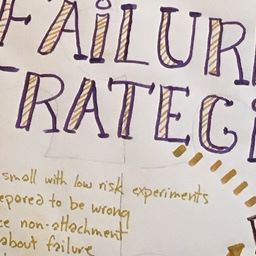 FAILUR
RATEG
small with low risk experiments
epared to be wrong
ce non-attachment
about failure